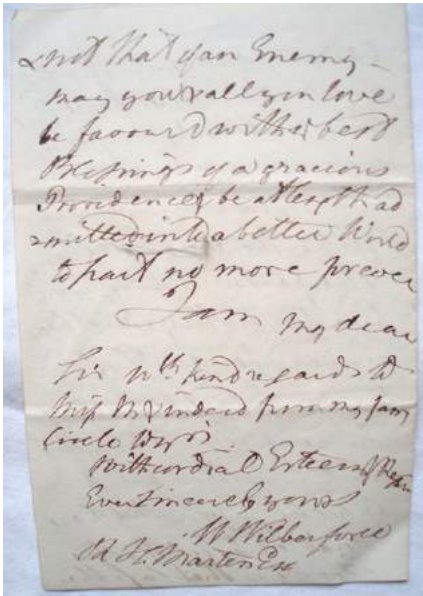 & not that of an Enemy -
may you & all you love
be favour'd with the best
Blessings of a gracious
Providence & be at length ad
mitted into a better World
to part no more forever
I am my dear
Sir with kind regards to
Miss M & indeed from my fam
circle to yrs.
with cordial Esteem & Regard
Ever sincerely yours
W Wilberforce
R H. Marten Esq